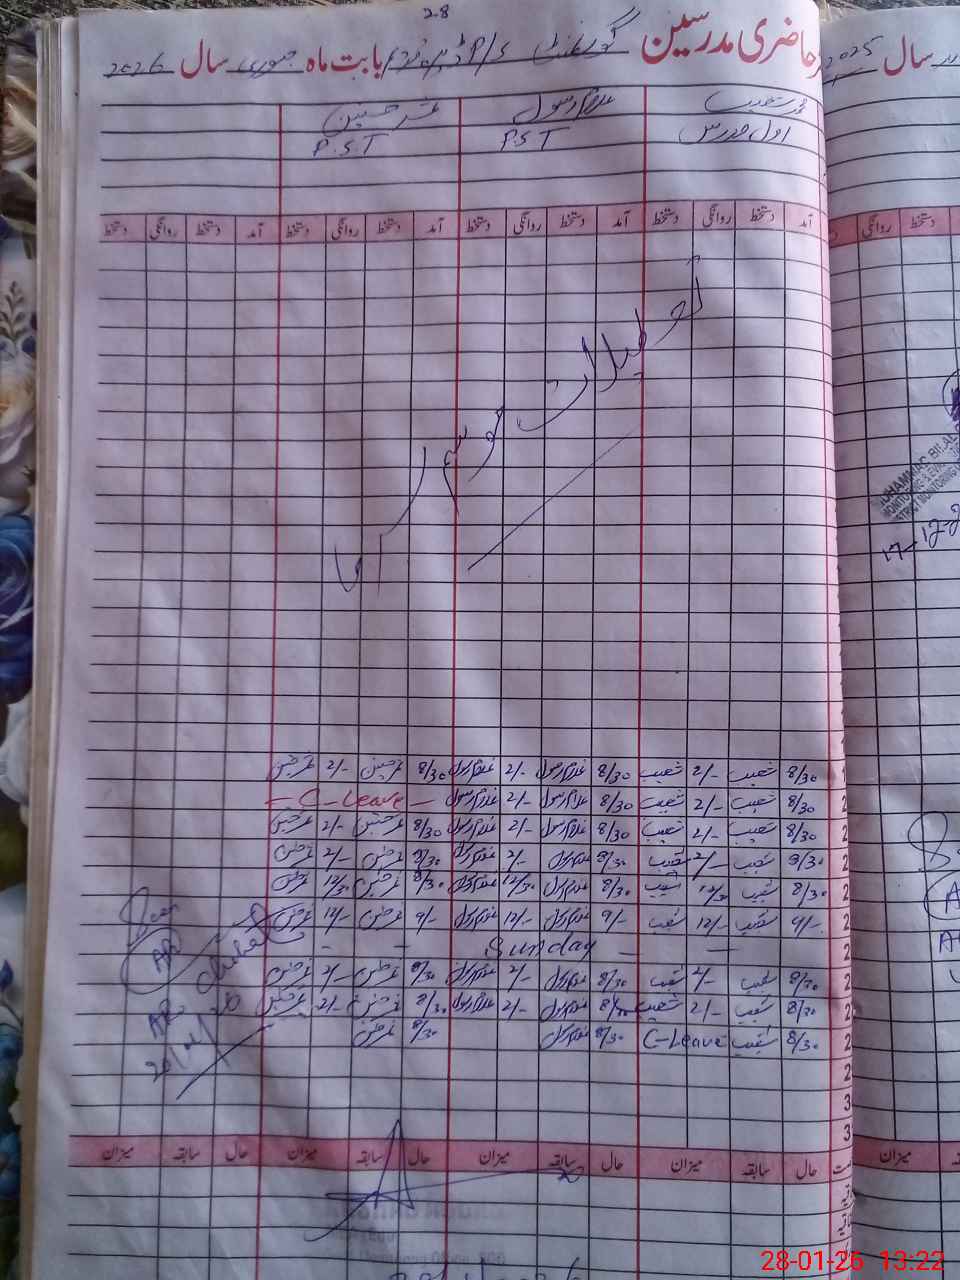 28
حاضری مدرسین گورنمنٹ P/S بابت ماہ جنوری سال 2026
سال 2025
محمد شعیب غلام رسول عمر حسنین
اول مدرس P.S.T P.S.T
آمد دستخط روانگی دستخط آمد دستخط روانگی دستخط آمد دستخط روانگی دستخط آمد دستخط روانگی دستخط
روانگی دستخط
تعطیلات موسم سرما
MUHAMMAD BILAL
MONITORING & EVA
17-12-2
8/30 شعیب 2/- شعیب 8/30 غلام رسول 2/- غلام رسول 8/30 عمر حسنین 2/- عمر حسنین
8/30 شعیب 2/- شعیب 8/30 غلام رسول 2/- غلام رسول - C-Leave -
8/30 شعیب 2/- شعیب 8/30 غلام رسول 2/- غلام رسول 8/30 عمر حسنین 2/- عمر حسنین
9/30 شعیب 2/- شعیب 9/30 غلام رسول 2/- غلام رسول 9/30 عمر حسنین 2/- عمر حسنین
8/30 شعیب 12/30 شعیب 8/30 غلام رسول 12/30 غلام رسول 8/30 عمر حسنین 12/30 عمر حسنین
9/- شعیب 12/- شعیب 9/- غلام رسول 12/- غلام رسول 9/- عمر حسنین 12/- عمر حسنین
- - Sunday - -
8/30 شعیب 2/- شعیب 8/30 غلام رسول 2/- غلام رسول 8/30 عمر حسنین 2/- عمر حسنین
8/30 شعیب 2/- شعیب 8/30 غلام رسول 2/- غلام رسول 8/30 عمر حسنین 2/- عمر حسنین
8/30 شعیب C-Leave 8/30 غلام رسول 8/30 عمر حسنین
Seen
حال سابقہ میزان حال سابقہ میزان حال سابقہ میزان حال سابقہ میزان
میزان
28-01-26 13:22